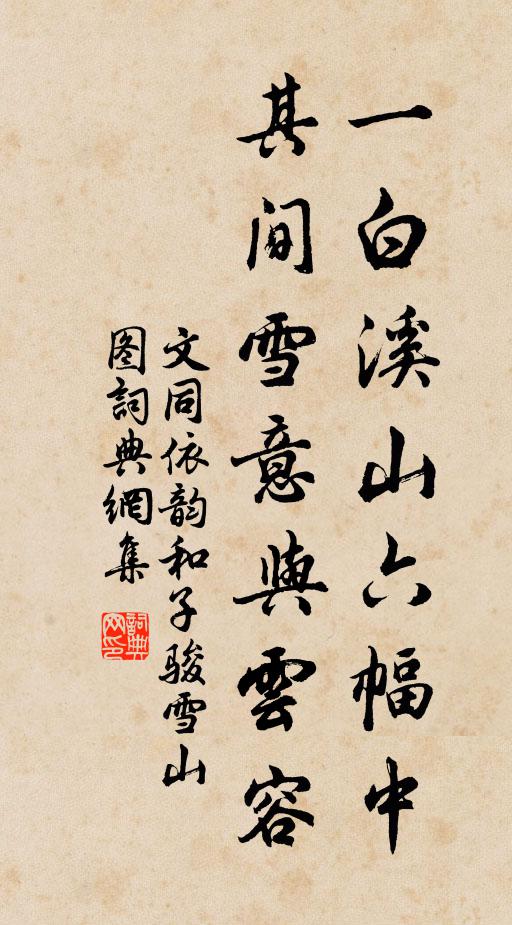 一白溪山六幅中
其間雪意與雲容
文同依韵和子骏雪山
图詞典網集
詞典
网印